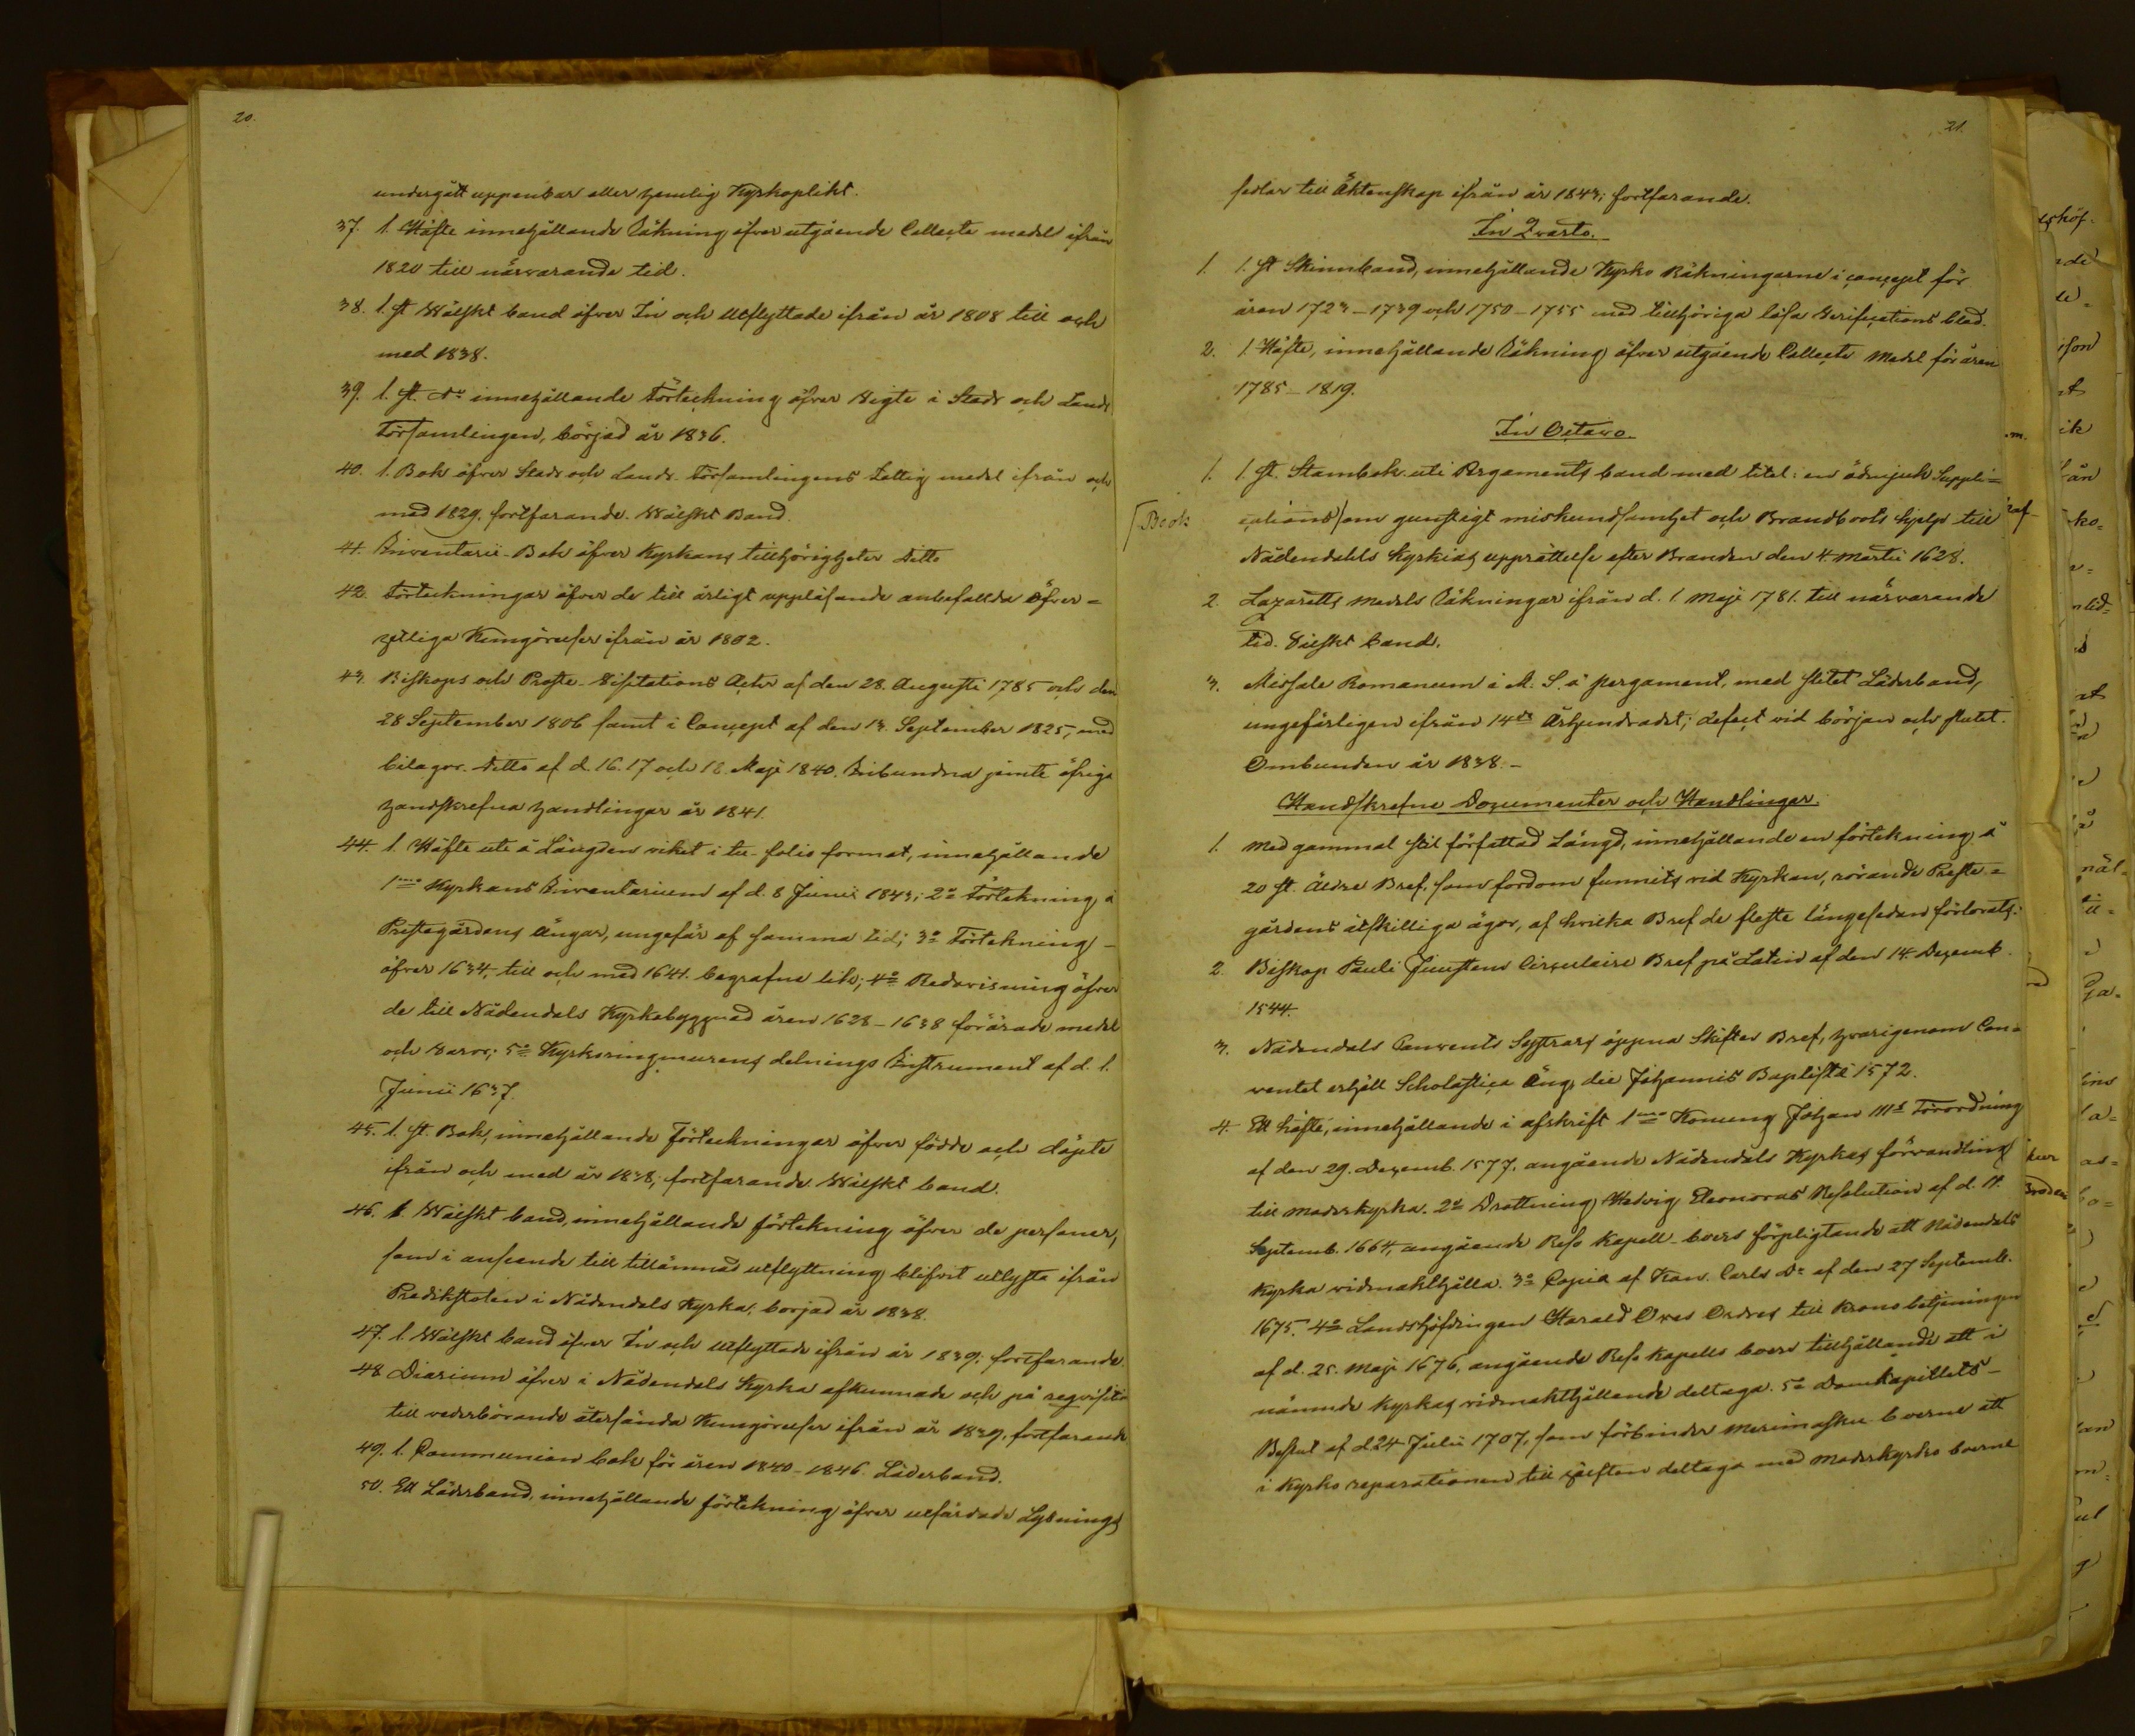 20.
undergått uppenbar eller hemlig Kyrkoplikt.
37. 1. Häfte innehållande Räkning öfver utgående Collecte medel ifrån
1820 till närvarande tid.
38. 1. st Wälskt band öfver In och Utflyttade ifrån år 1808 till och
med 1838.
39. 1. st. do innehållande Förteckning öfver Vigte i Stads och Lands
Församlingen, börjad år 1836.
40. 1. Bok öfver Stads och Lands-Församlingens Fattig medel ifrån och
med 1829. fortfarande. Wälskt Band.
41. Inventarii-Bok öfver Kyrkans tillhörigheter Ditto
42. Förteckningar öfver de till årligt uppläsande anbefallda Öfver=
hetliga Kungörelser ifrån år 1802.
43. Biskops och Proste-Visitations Acter af den 28. Augusti 1785 och den
28 September 1806 samt i Concept af den 13. September 1825, med
bilagor. Ditto af d. 16. 17 och 18. Maji 1840. Inbundna jämte öfriga
handskrefna handlingar år 1841.
44. 1. Häfte ute å Längden viket i tu-folio format, innehållande
1mo Kyrkans Inventarium af d. 8 Junii 1643; 2o Förtekning å
Prestegårdens Ängar, ungefär af samma tid; 3o Förtekning
öfver 1634, till och med 1641. begrafne lik; 4o Redovisning öfver
de till Nådendals Kyrkobyggnad åren 1628–1638 förärade medel
och varor; 5o Kyrkoringmurens delnings Instrument af d. 1.
Junii 1637.
45. 1. st. Bok, innehållande Förteckningar öfver födde och döpte
ifrån och med år 1838; fortfarande. Wälskt band.
46. 1. Wälskt band, innehållande förtekning öfver de personer,
som i anseende till tillämnad utflyttning blifvit utlysta ifrån
Predikstolen i Nådendals Kyrka, börjad år 1838.
47. 1. Wälskt band öfver In och Utflyttade ifrån år 1839; fortfarande.
48 Diarium öfver i Nådendals Kyrka afkunnade och på reqvisita
till vederbörande återsända Kungörelser ifrån år 1839. fortfarande
49. 1. Communion bok för åren 1840–1846. Läderband.
50. Ett Läderband, innehållande förtekning öfver utfärdade Lysnings
21.
sedlar till Äktenskap ifrån år 1843; fortfarande.
In Qvarto.
1. 1. st Skinnband, innehållande Kyrko Räkningarne i concept för
åren 1723–1739 och 1750–1755 med tillhöriga lösa Verifications blad.
2. 1. Häfte, innehållande Räkning öfver utgående Collecte Medel för åren
1785–1819.
In Octavo.
1. 1. st. Stambok uti Pergaments band med titel: en ödmjuk Suppli=
Book cations om gunstigt miskundsamhet och Brandbots hjelp till
Nådendahls Kyrkias upprättelse efter Branden den 4. Martii 1628.
2. Lazaretts Medels Räkningar ifrån d. 1 Maji 1781. till närvarande
tid. Välskt band.
3. Missale Romanum i M. S. å pergament, med slitet Läderband,
ungefärligen ifrån 14de Århundradet; defect vid början och slutet.
Ombunden år 1838.–
Handskrefne Documenter och Handlingar.
1. Med gammal stil författad Längd, innehållande en förtekning å
20 st. Äldre Bref, som fordom funnits vid Kyrkan, rörande Preste=
gårdens åtskilliga ägor, af hvilka Bref de fleste längesedan förlorats.
2. Biskop Pauli Juusten Circulaire Bref på Latin af den 14 Decemb.
1544.
3. Nådendals Convents Systrars öppna Skiftes Bref, hvarigenom Con=
ventet erhöll Scholastica Äng, die Johannis Baptistæ 1572.
4. Ett häfte, innehållande i afskrift 1mo Konung Johan IIIs Förordning
af den 29. Decemb. 1577. angående Nådendals Kyrkas förvandling
till Moderkyrka. 2o Drottning Hedvig Eleonoras Resolution af d. 11.
Septemb. 1664, angående Reso Kapell-boers förpligtande att Nådendals
Kyrka vidmakthålla. 3o Copia af Kon. Carls do af den 27 Septemb.
1675. 4o Landshöfdingen Harald Oxes Ordres till Krono betjeningen
af d. 25. Maji 1676, angående Reso Kapells boers tillhållande att i
nämnde Kyrkas vidmakthållande deltaga. 5o Domkapitlets
Beslut af d. 24 Julii 1707, som förbinder Merimasku boerne att
i Kyrko reparationen till hälften deltaga med Moderkyrko boerne